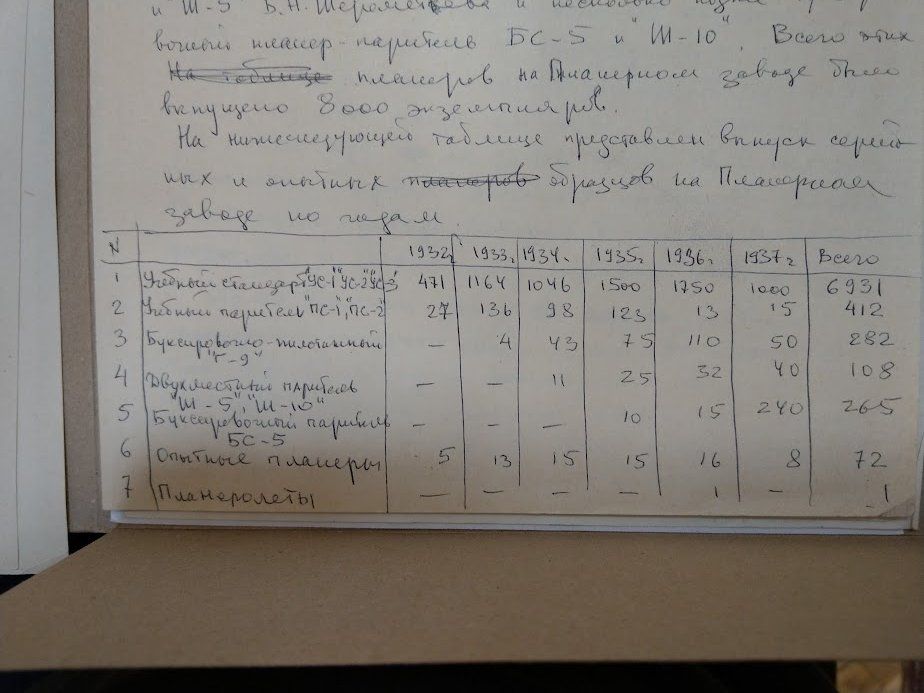 и "Ш-5" Б.Н. Шереметьева и несколько позже
вочный планер-паритель БС-5 и "Ш-10". Всего этих
На таблице планеров на Планерном заводе было
выпущено 8000 экземпляров.
На нижеследующей таблице представлен выпуск серий-
ных и опытных планеров образцов на Планерном
заводе по годам.
N 1932г. 1933г. 1934г. 1935г. 1936г. 1937г. Всего
1 Учебный стандарт "УС-1" "УС-2" "УС-3" 471 1164 1046 1500 1750 1000 6931
2 Учебный паритель "ПС-1", "ПС-2" 27 136 98 123 13 15 412
3 Буксировочно-пилотажный — 4 43 75 110 50 282
"Г-9"
4 Двухместный паритель — — 11 25 32 40 108
"Ш-5", "Ш-10"
5 Буксировочный паритель — — — 10 15 240 265
БС-5
6 Опытные планеры 5 13 15 15 16 8 72
7 Планеролеты — — — — 1 — 1